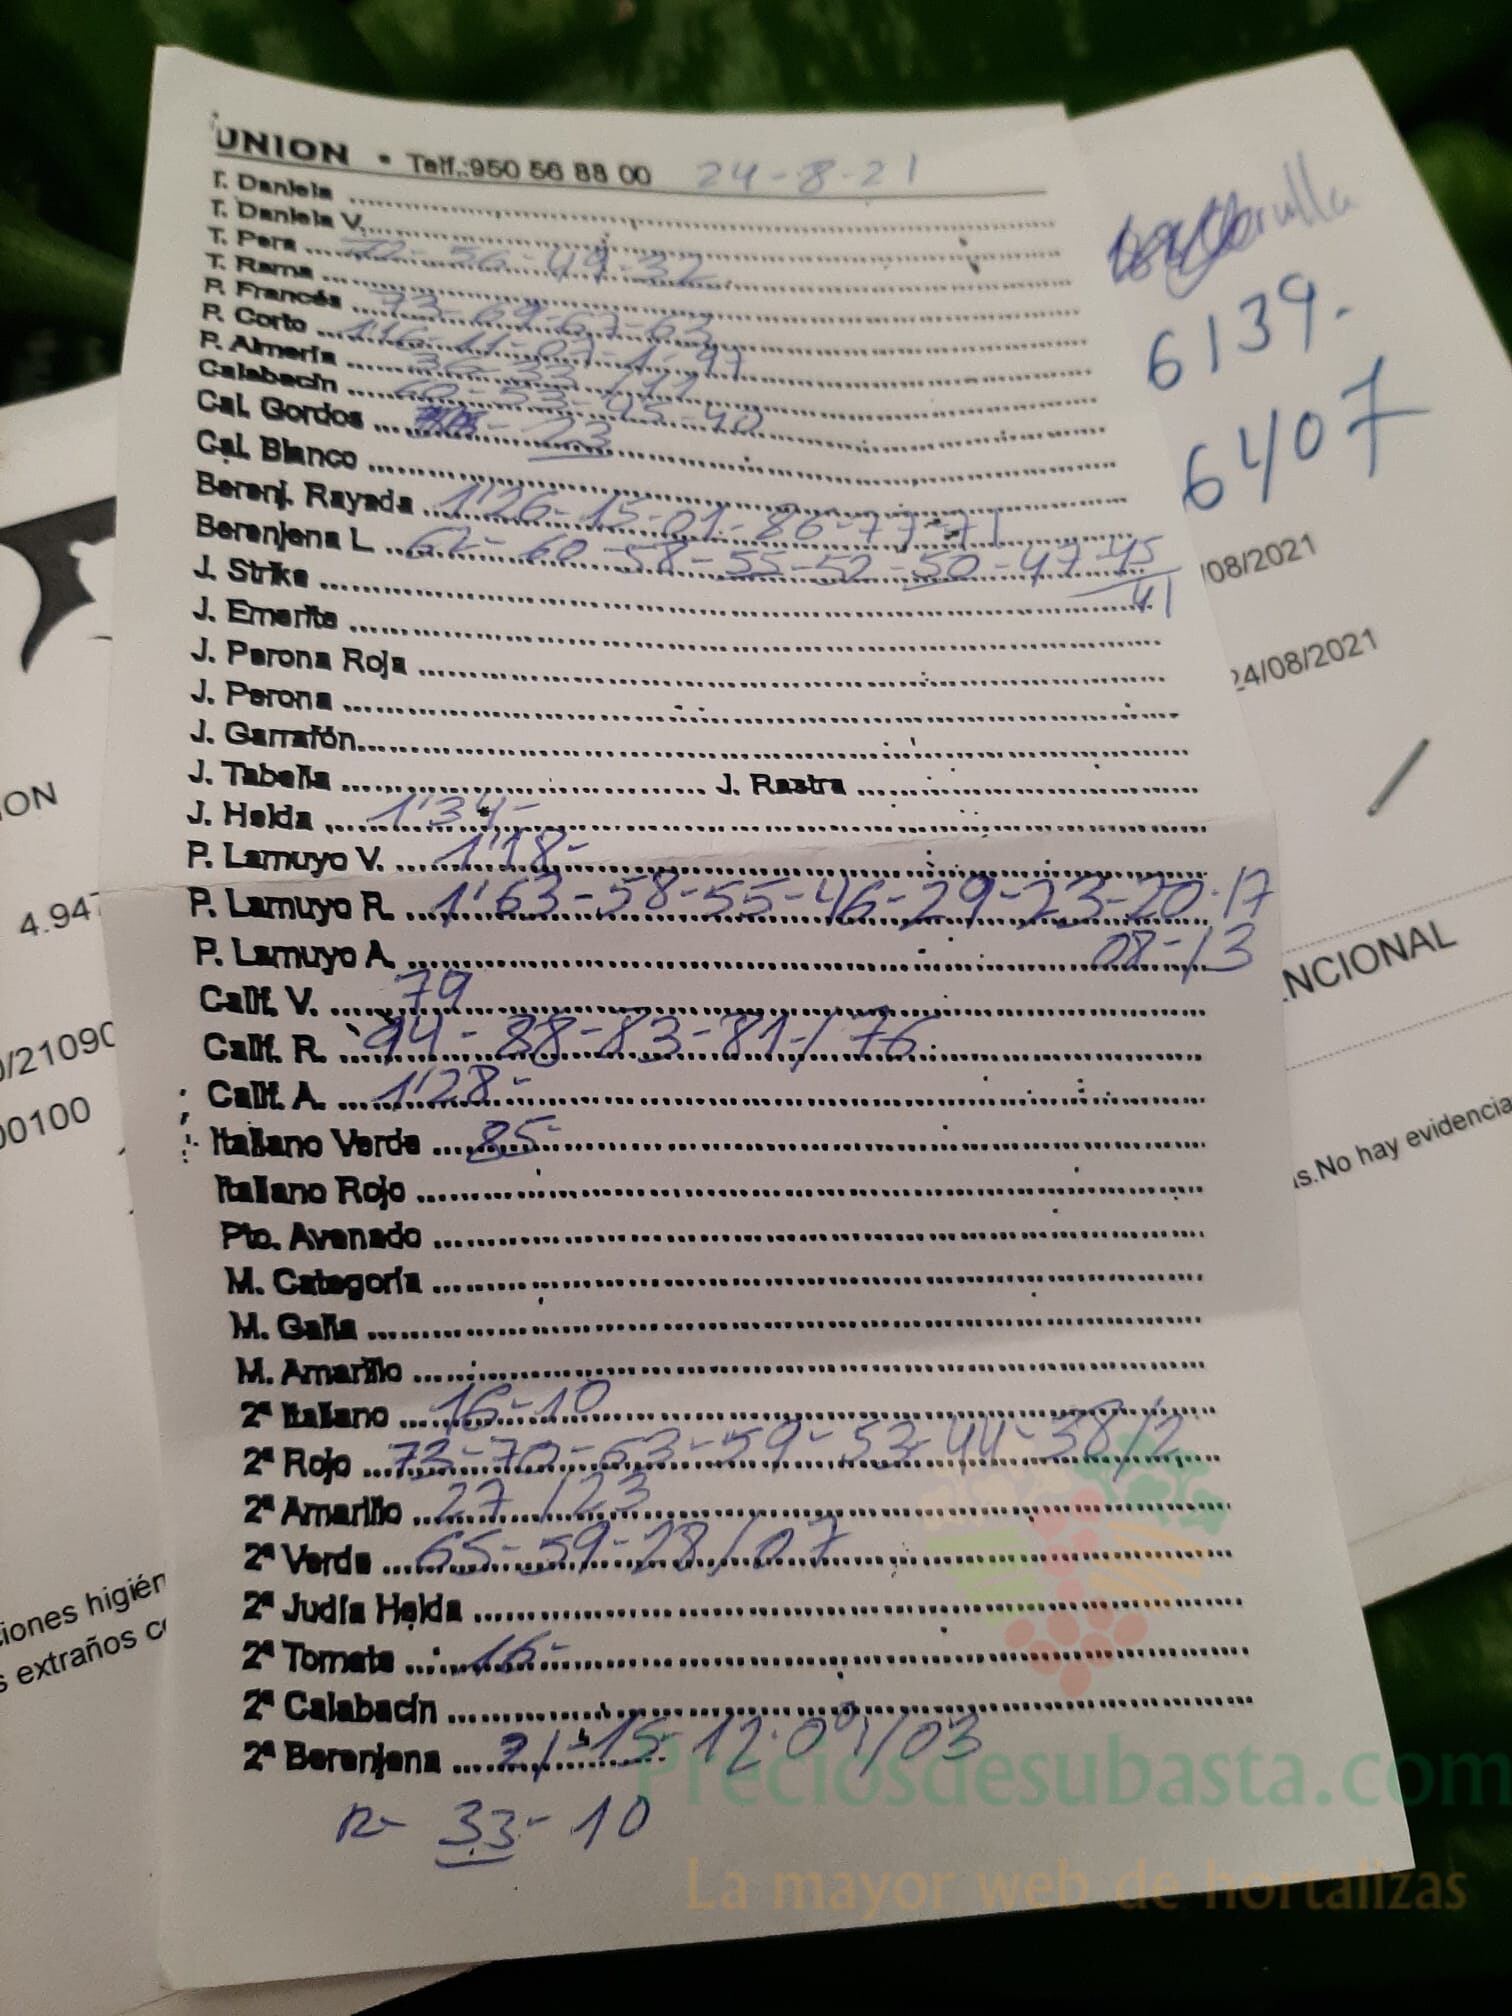 UNION • Telf.:950 56 88 00 24-8-21
T. Daniela
T. Daniela V.
T. Pera 72-56-49-32
T. Rama
P. Francés 73-69-67-63
P. Corto 116-11-07-1-97
P. Almería 36-33
Calabacín 60-53-45-40
Cal. Gordos 23
Cal. Blanco
Berenj. Rayada 1'26-15-01-86-77-71
Berenjena L 62-60-58-55-52-50-47-45
41
J. Strike
J. Emerite
J. Perona Roja
J. Perona
J. Garrafón
J. Tabella J. Rastra
J. Helda 1'34-
P. Lamuyo V. 1'18-
P. Lamuyo R. 1'63-58-55-46-29-23-20-17
08-13
P. Lamuyo A.
Calif. V. 79
Calif. R. 94-88-83-81-/76
Calif. A. 1'28-
Italiano Verde 85-
Italiano Rojo
Pto. Avenado
M. Categoría
M. Galia
M. Amarillo
2ª Italiano 16-10
2ª Rojo 73-70-63-59-53-44-38/2
2ª Amarillo 27/23
2ª Verde 65-59-28/07
2ª Judía Helda
2ª Tomate 16-
2ª Calabacín
2ª Berenjena 21-15-12-09/03
R- 33-10
6139.
6407
/08/2021
24/08/2021
NCIONAL
s.No hay evidencia
ION
4.947
0/21090
00100
ciones higién
s extraños co
Preciosdesubasta.com
La mayor web de hortalizas